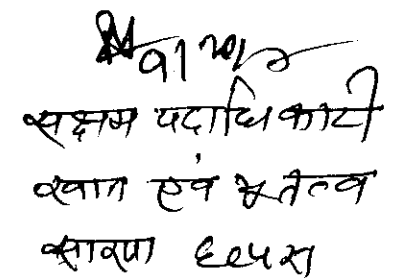 सक्षम पदाधिकारी
खान एवं भूतत्व
सारण